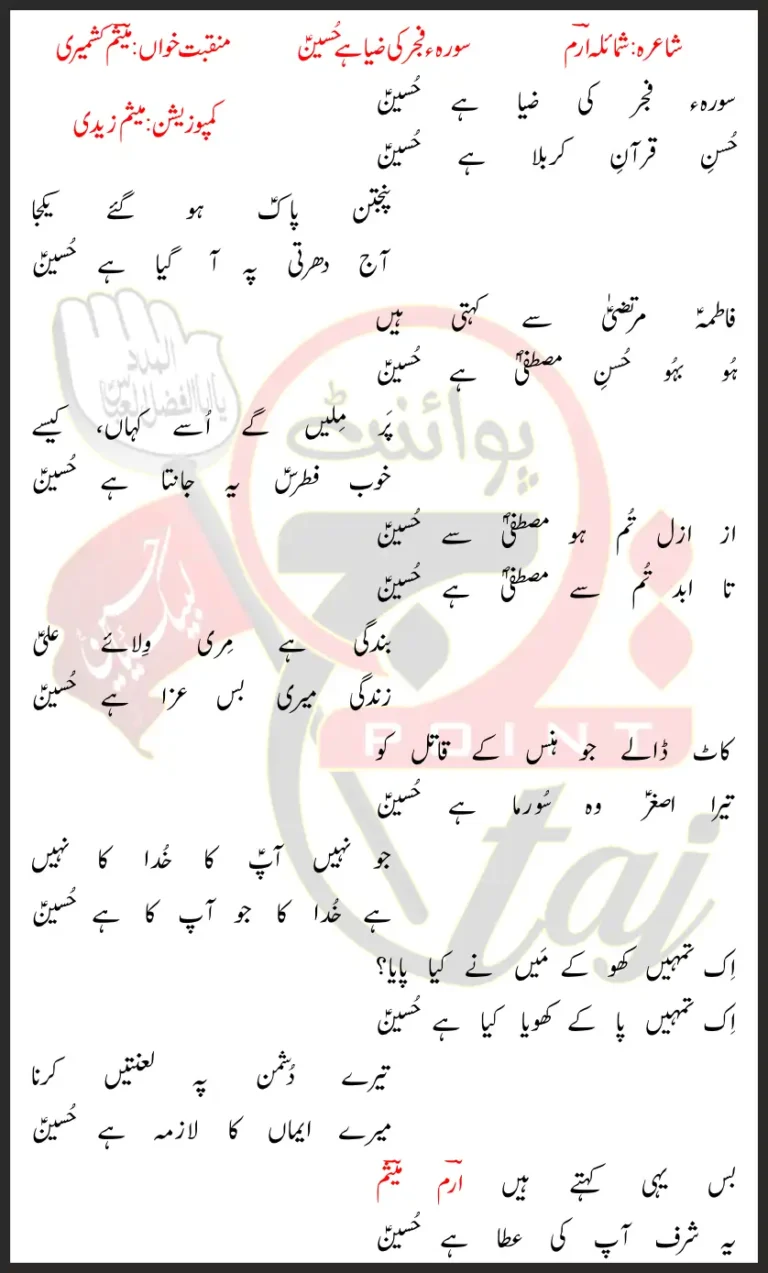 شاعرہ: شمائلہ ارم سورہء فجر کی ضیا ہے حُسینؑ منقبت خواں: میثم کشمیری
کمپوزیشن: میثم زیدی
سورہء فجر کی ضیا ہے حُسینؑ
حُسنِ قرآنِ کربلا ہے حُسینؑ
پنجتن پاکؑ ہو گئے یکجا
آج دھرتی پہ آ گیا ہے حُسینؑ
فاطمہؑ مرتضیٰؑ سے کہتی ہیں
ہُو بہُو حُسنِ مصطفیٰؐ ہے حُسینؑ
پَر مِلیں گے اُسے کہاں، کیسے
خوب فطرسؑ یہ جانتا ہے حُسینؑ
از ازل تُم ہو مصطفیٰؐ سے حُسینؑ
تا ابد تُم سے مصطفیٰؐ ہے حُسینؑ
بندگی ہے مِری وِلائے علیؑ
زندگی میری بس عزا ہے حُسینؑ
کاٹ ڈالے جو ہنس کے قاتل کو
تیرا اصغرؑ وہ سُورما ہے حُسینؑ
جو نہیں آپؑ کا خُدا کا نہیں
ہے خُدا کا جو آپ کا ہے حُسینؑ
اِک تمہیں کھو کے مَیں نے کیا پایا؟
اِک تمہیں پا کے کھویا کیا ہے حُسینؑ
تیرے دُشمن پہ لعنتیں کرنا
میرے ایماں کا لازمہ ہے حُسینؑ
بس یہی کہتے ہیں ارم میثم
یہ شرف آپ کی عطا ہے حُسینؑ
المدد
یا ابا الفضل العباسؑ
لبیک یا حسینؑ
پوائنٹ
تاج
POINT
taj